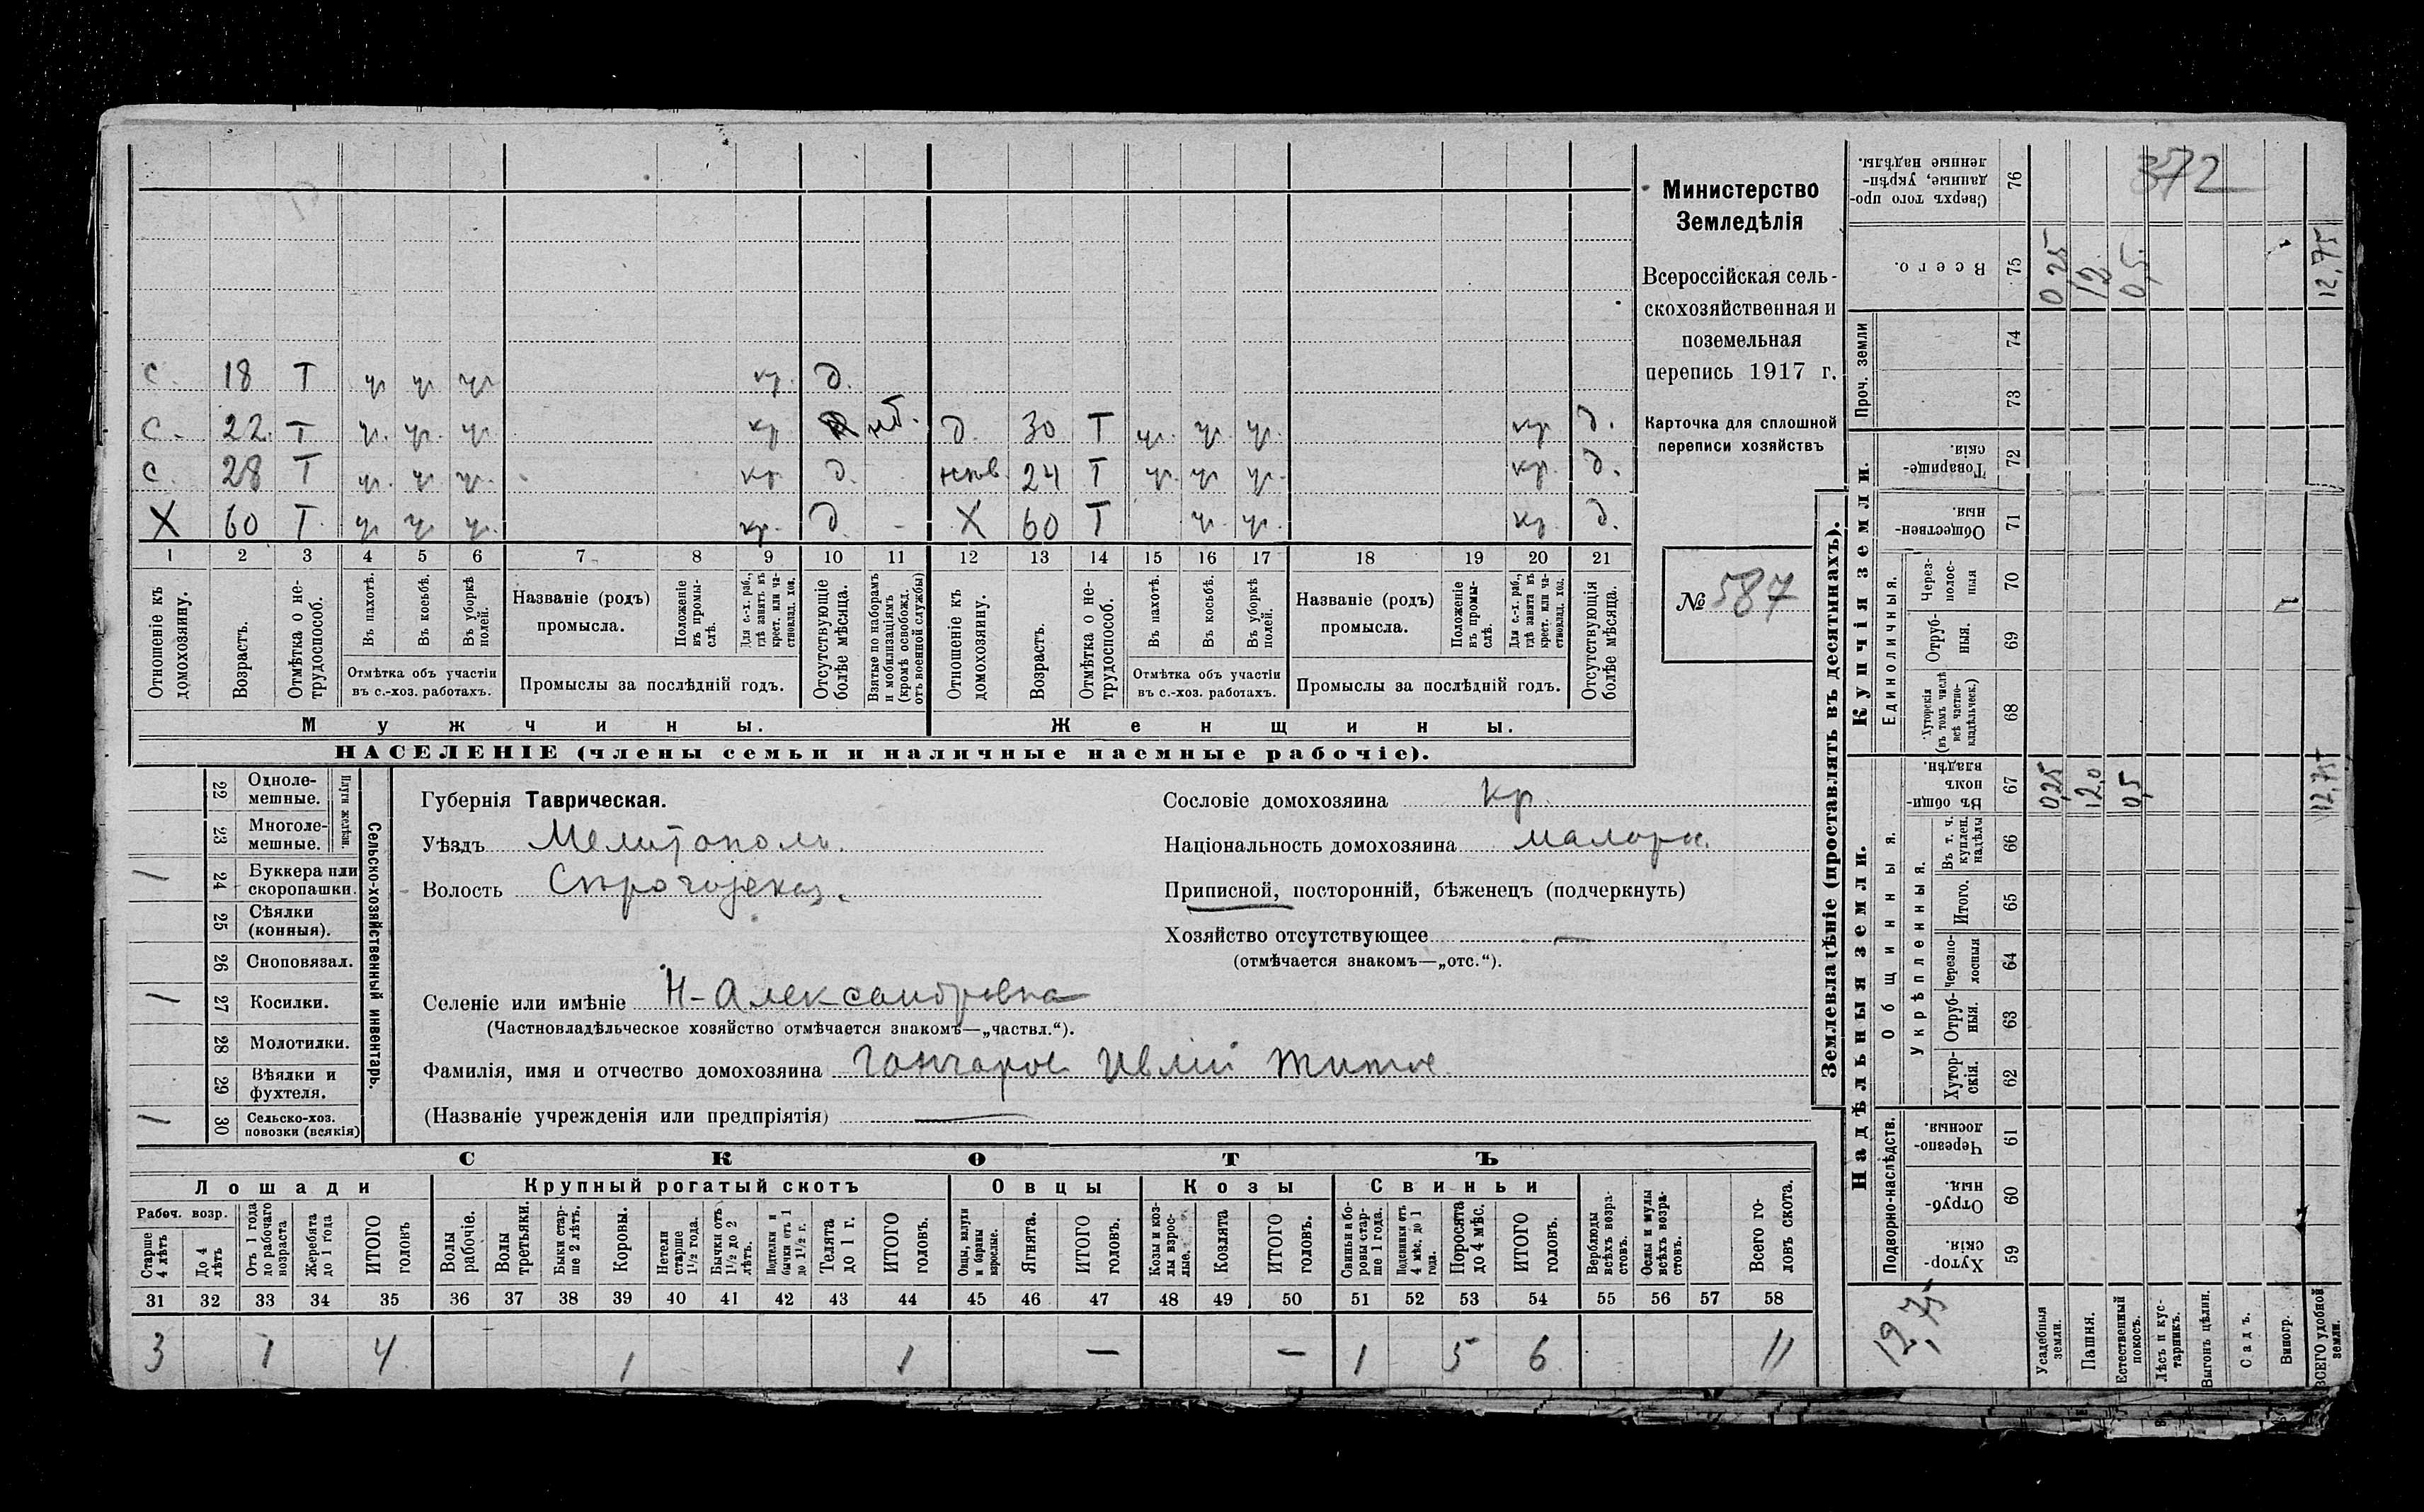 372
С. 18 Т ч ч ч кр. д.
С. 22. Т ч. ч. ч кр мб. д. 30 Т ч. ч. ч. кр д.
С. 28 Т ч. ч ч. кр д. нев 24 Т ч. ч ч. кр. д.
Х 60 Т. ч ч ч. кр. д. - Х 60 Т ч. ч. кр. д.
1 2 3 4 5 6 7 8 9 10 11 12 13 14 15 16 17 18 19 20 21
Отношеніе къ домохозяину.
Возрастъ.
Отмѣтка о нетрудоспособ.
Въ пахотѣ.
Въ косьбѣ.
Въ уборкѣ полей.
Отмѣтка объ участіи
въ с.-хоз. работахъ.
Названіе (родъ)
промысла.
Положеніе въ промыслѣ.
Для с.-х. раб., гдѣ занятъ въ крест. или частновлад. хоз.
Промыслы за послѣдній годъ.
Отсутствующіе болѣе мѣсяца.
Взятые по наборамъ и мобилизаціямъ (кромѣ освобожд. отъ военной службы)
Отношеніе къ домохозяину.
Возрастъ.
Отмѣтка о нетрудоспособ.
Въ пахотѣ.
Въ косьбѣ.
Въ уборкѣ полей.
Отмѣтка объ участіи
въ с.-хоз. работахъ.
Названіе (родъ)
промысла.
Положеніе въ промыслѣ.
Для с.-х. раб., гдѣ занята въ крест. или частновлад. хоз.
Промыслы за послѣдній годъ.
Отсутствующія болѣе мѣсяца.
Мужчины.
Женщины.
НАСЕЛЕНІЕ (члены семьи и наличные наемные рабочіе).
Министерство
Земледѣлія
Всероссійская сель-
скохозяйственная и
поземельная
перепись 1917 г.
Карточка для сплошной
переписи хозяйствъ
№ 587
Сельско-хозяйственный инвентарь.
Плуги желѣзн.
22 Одноле-
мешные.
23 Многоле-
мешные.
1 24 Буккера или
скоропашки.
25 Сѣялки
(конныя).
26 Сноповязал.
1 27 Косилки.
28 Молотилки.
29 Вѣялки и
фухтеля.
1 30 Сельско-хоз.
повозки (всякія)
Губернія Таврическая.
Уѣздъ Мелитополь.
Волость
Селеніе или имѣніе Н-Александровка
(Частновладѣльческое хозяйство отмѣчается знакомъ—„частвл.“).
Фамилія, имя и отчество домохозяина Гончаров
(Названіе учрежденія или предпріятія) —
Сословіе домохозяина кр.
Національность домохозяина малорос.
Приписной, посторонній, бѣженецъ (подчеркнуть)
Хозяйство отсутствующее —
(отмѣчается знакомъ—„отс.“).
СКОТЪ
Лошади
Крупный рогатый скотъ
Овцы
Козы
Свиньи
Рабоч. возр.
Старше 4 лѣтъ
До 4 лѣтъ
Отъ 1 года до рабочаго возраста
Жеребята до 1 года
ИТОГО головъ
Волы рабочіе.
Волы третьяки.
Быки старше 2 лѣтъ.
Коровы.
Нетели старше 1½ года.
Бычки отъ 1½ до 2 лѣтъ.
Подтелки и бычки отъ 1 до 1½ г.
Телята до 1 г.
ИТОГО головъ.
Овцы, валухи и бараны взрослые.
Ягнята.
ИТОГО головъ.
Козы и козлы взрослые.
Козлята
ИТОГО головъ.
Свиньи и боровы старше 1 года.
Подсвинки отъ 4 мѣс. до 1 года.
Поросята до 4 мѣс.
ИТОГО головъ.
Верблюды всѣхъ возрастовъ.
Ослы и мулы всѣхъ возрастовъ.
Всего головъ скота.
31 32 33 34 35 36 37 38 39 40 41 42 43 44 45 46 47 48 49 50 51 52 53 54 55 56 57 58
3 1 4 1 1 — — 1 5 6 11
Землевладѣніе (проставлять въ десятинахъ).
Надѣльныя земли.
Купчія земли.
Проч. земли
Подворно-наслѣдств.
Общинныя.
Укрѣпленныя.
Единоличныя.
59 Хуторскія
60 Отрубныя.
61 Черезполосныя.
62 Хуторскія.
63 Отрубныя.
64 черезполосныя
65 Итого.
66 Въ т. ч. куплен. надѣлы
67 Въ общинномъ владѣн.
68 Хуторскія (въ томъ числѣ всѣ частновладѣльческ.)
69 Отрубныя.
70 Черезполосныя
71 Общественныя.
72 Товарищескія.
73
74
75 Всего.
76 Сверхъ того проданные, укрѣпленные надѣлы.
Усадебныя земли.
Пашня.
Естественный покосъ.
Лѣсъ и кустарникъ.
Выгонъ цѣлин.
Садъ.
Виногр.
ВСЕГО удобной земли.
12,75
0,25
12,0
0,5
12,75
0,25
12
0,5
12,75